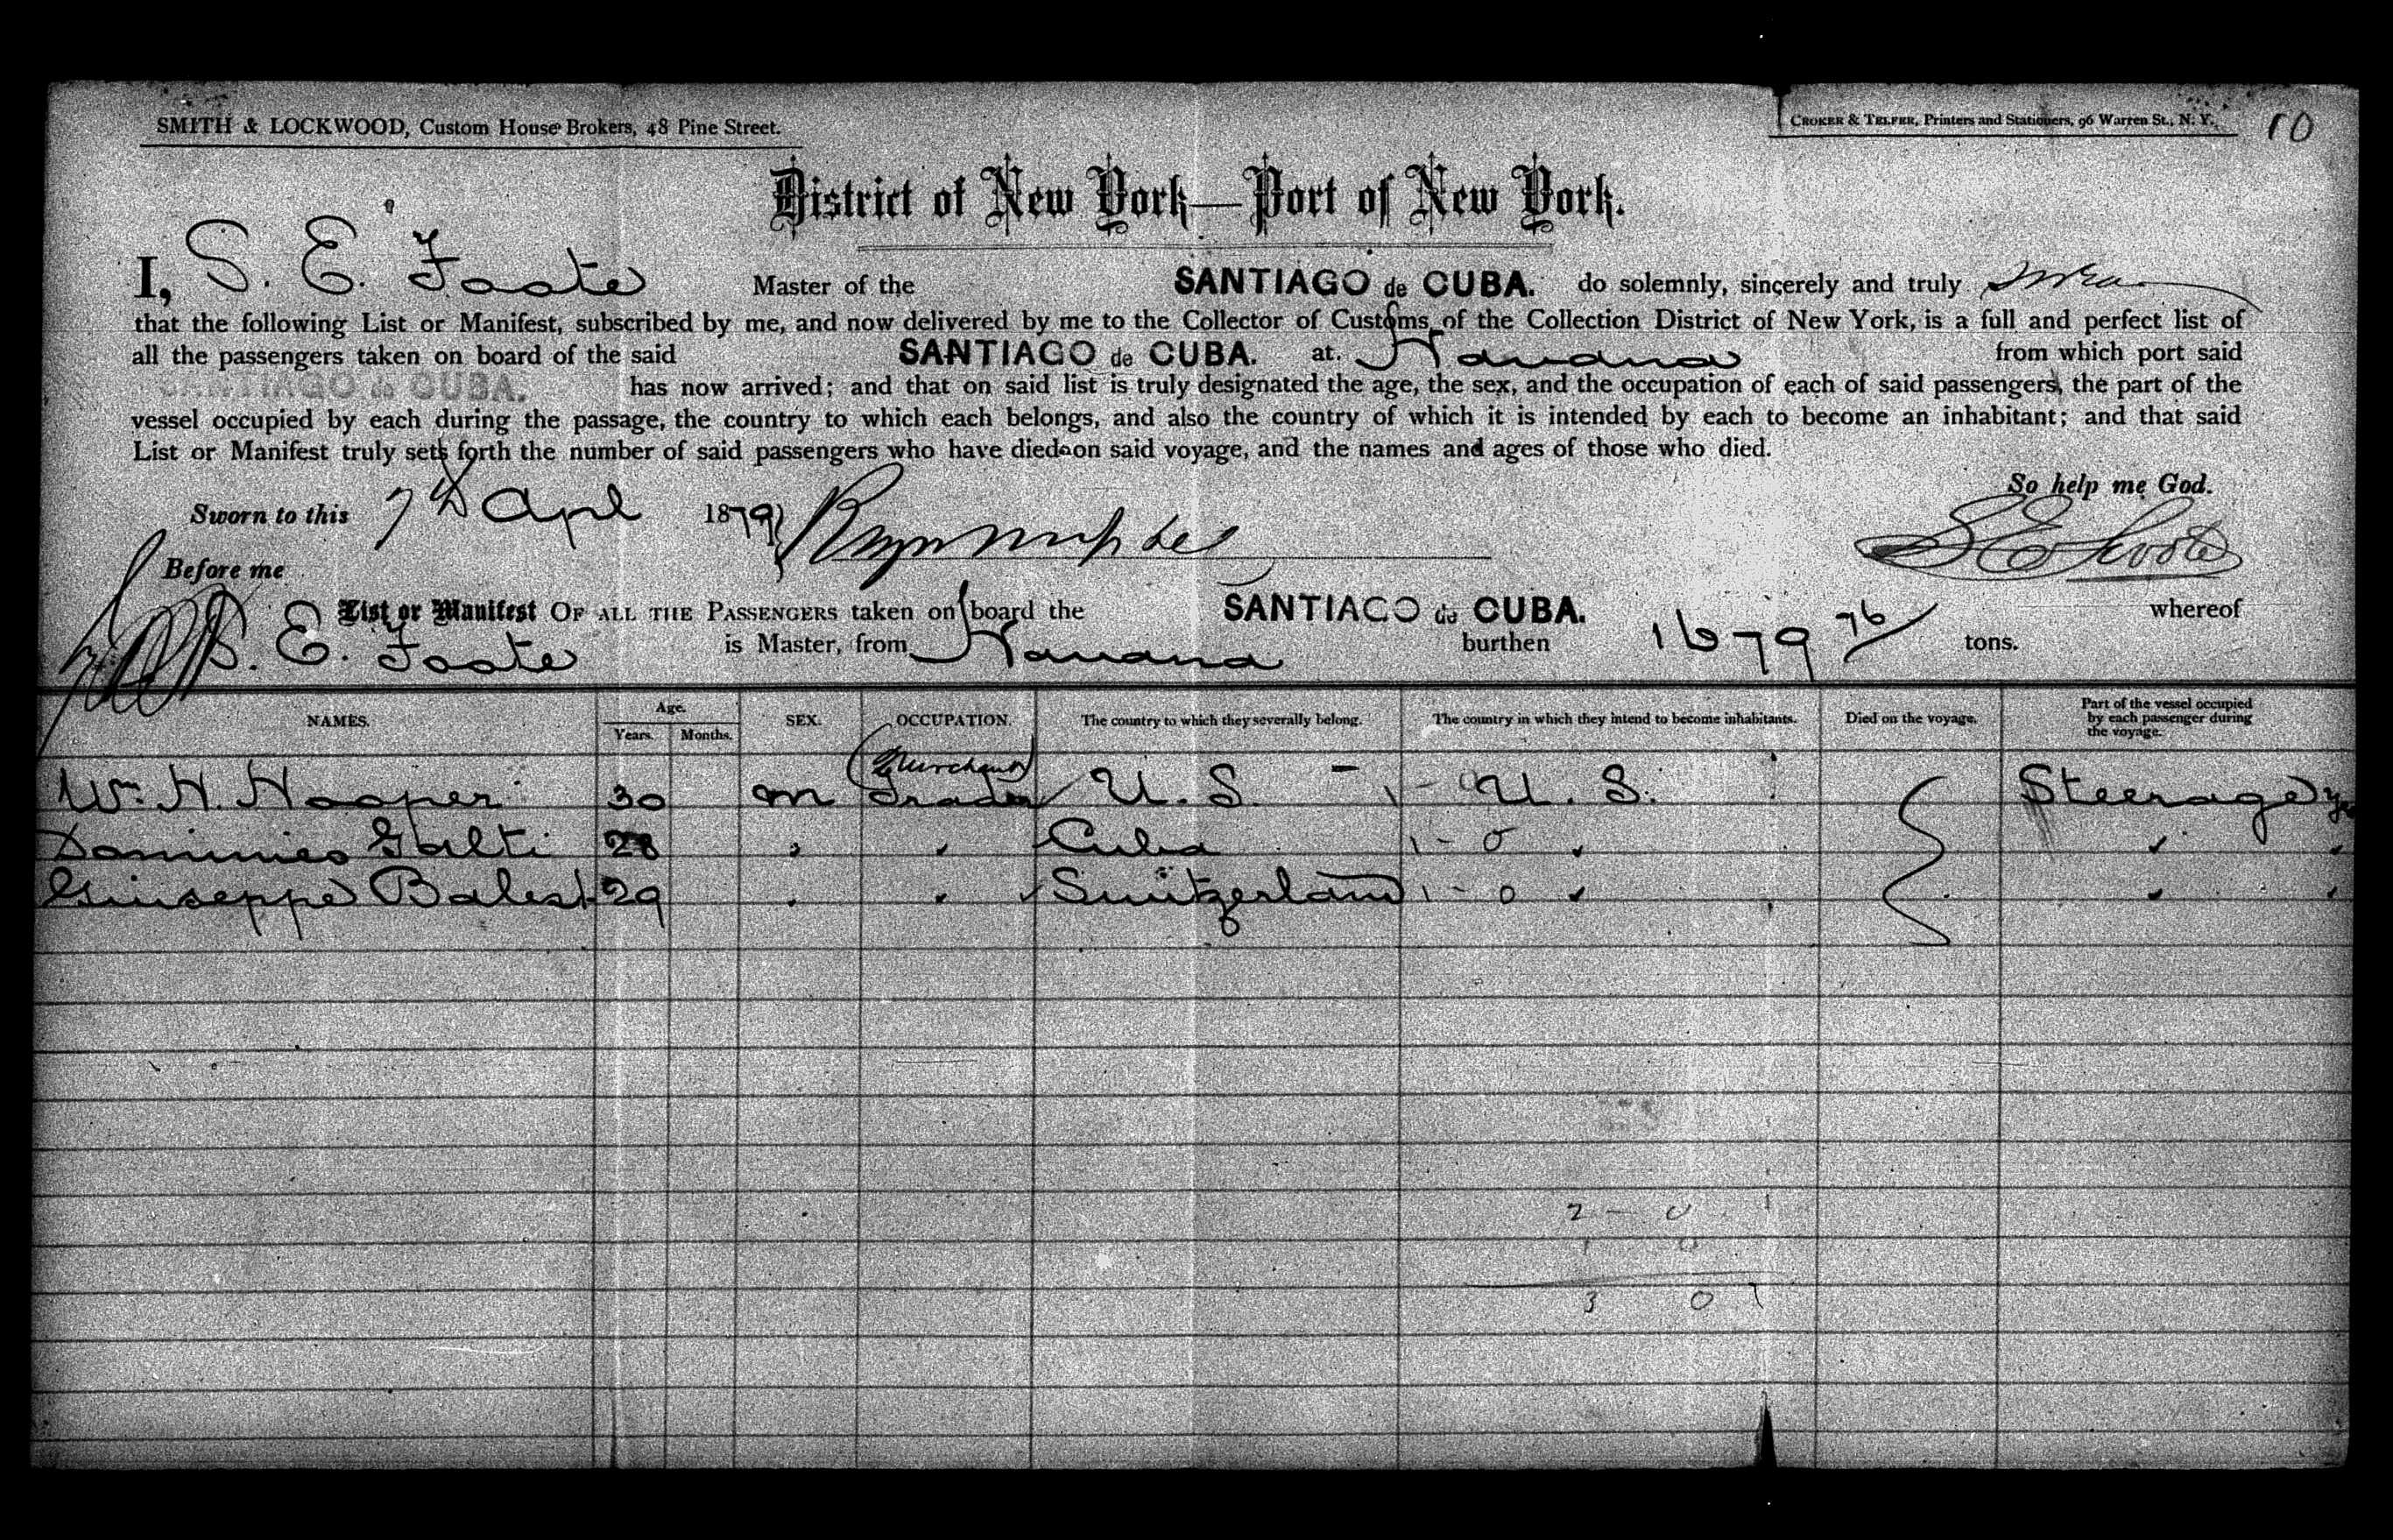 SMITH & LOCKWOOD, Custom House Brokers, 48 Pine Street.
CROKER & TELFER, Printers and Stationers, 96 Warren St., N. Y.
10
District of New York—Port of New York.
I, S. E. Foote Master of the SANTIAGO de CUBA. do solemnly, sincerely and truly
that the following List or Manifest, subscribed by me, and now delivered by me to the Collector of Customs of the Collection District of New York, is a full and perfect list of
all the passengers taken on board of the said SANTIAGO de CUBA. at Havana from which port said
SANTIAGO de CUBA. has now arrived; and that on said list is truly designated the age, the sex, and the occupation of each of said passengers, the part of the
vessel occupied by each during the passage, the country to which each belongs, and also the country of which it is intended by each to become an inhabitant; and that said
List or Manifest truly sets forth the number of said passengers who have died on said voyage, and the names and ages of those who died.
So help me God.
Sworn to this 7th Apl 1879
S E Foote
Before me
List or Manifest OF ALL THE PASSENGERS taken on board the SANTIAGO de CUBA. whereof
S. E. Foote is Master, from Havana burthen 1679 76/ tons.
NAMES. Age. Years. Months. SEX. OCCUPATION. The country to which they severally belong. The country in which they intend to become inhabitants. Died on the voyage. Part of the vessel occupied by each passenger during the voyage.
Merchant
Wm. H. Hooper 30 m Trader U. S. - 1 - U. S. Steerage
28 " " Cuba 1 - 0 "
Giuseppe Balest 29 " " Switzerland 1 - 0 "
2 - 0
1 0
3 0